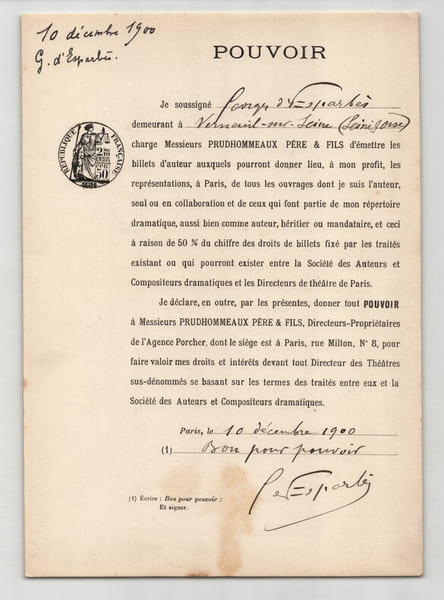 10 décembre 1900
G. d'Esparbès.
POUVOIR
Je soussigné Georges d'Esparbès
demeurant à Verneuil-sur-Seine (Seine&Oise)
charge Messieurs PRUDHOMMEAUX PÈRE & FILS d'émettre les
billets d'auteur auxquels pourront donner lieu, à mon profit, les
représentations, à Paris, de tous les ouvrages dont je suis l'auteur,
seul ou en collaboration et de ceux qui font partie de mon répertoire
dramatique, aussi bien comme auteur, héritier ou mandataire, et ceci
à raison de 50 % du chiffre des droits de billets fixé par les traités
existant ou qui pourront exister entre la Société des Auteurs et
Compositeurs dramatiques et les Directeurs de théâtre de Paris.
RÉPUBLIQUE FRANÇAISE
50
Je déclare, en outre, par les présentes, donner tout POUVOIR
à Messieurs PRUDHOMMEAUX PÈRE & FILS, Directeurs-Propriétaires
de l'Agence Porcher, dont le siège est à Paris, rue Milton, N° 8, pour
faire valoir mes droits et intérêts devant tout Directeur des Théâtres
sus-dénommés se basant sur les termes des traités entre eux et la
Société des Auteurs et Compositeurs dramatiques.
Paris, le 10 décembre 1900
(1) Bon pour pouvoir
G d'Esparbès
(1) Écrire : Bon pour pouvoir :
Et signer.